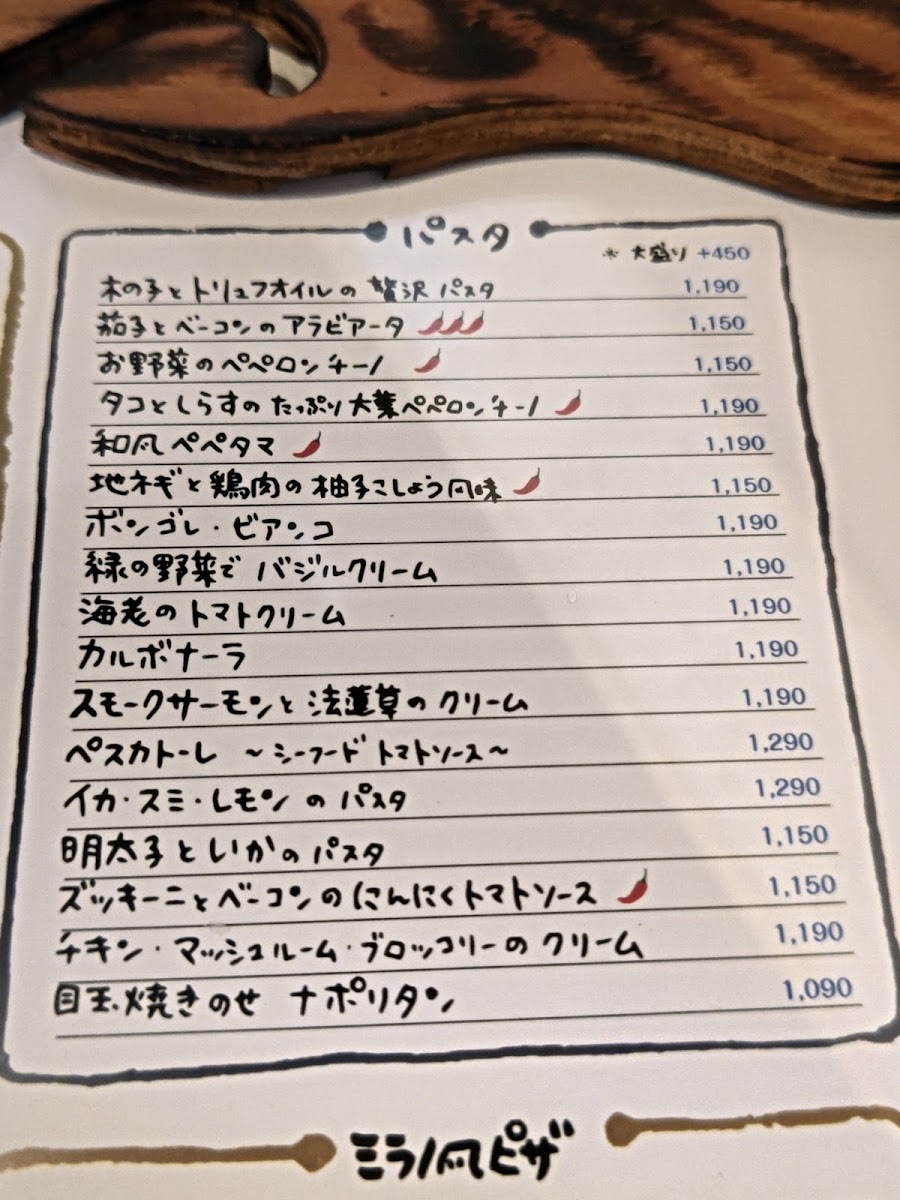 パスタ
※ 大盛り +450
木の子とトリュフオイルの 贅沢 パスタ 1,190
茄子とベーコンのアラビアータ 1,150
お野菜のペペロンチーノ 1,150
タコとしらすの たっぷり 大葉ペペロンチーノ 1,190
和風ペペタマ 1,190
地ネギと鶏肉の柚子こしょう風味 1,150
ボンゴレ・ビアンコ 1,190
緑の野菜で バジルクリーム 1,190
海老のトマトクリーム 1,190
カルボナーラ 1,190
スモークサーモンと法蓮草のクリーム 1,190
ペスカトーレ ~シーフード トマトソース~ 1,290
イカ・スミ・レモンのパスタ 1,290
明太子といかのパスタ 1,150
ズッキーニとベーコンのにんにくトマトソース 1,150
チキン・マッシュルーム・ブロッコリーのクリーム 1,190
目玉焼きのせ ナポリタン 1,090
ミラノ風ピザ